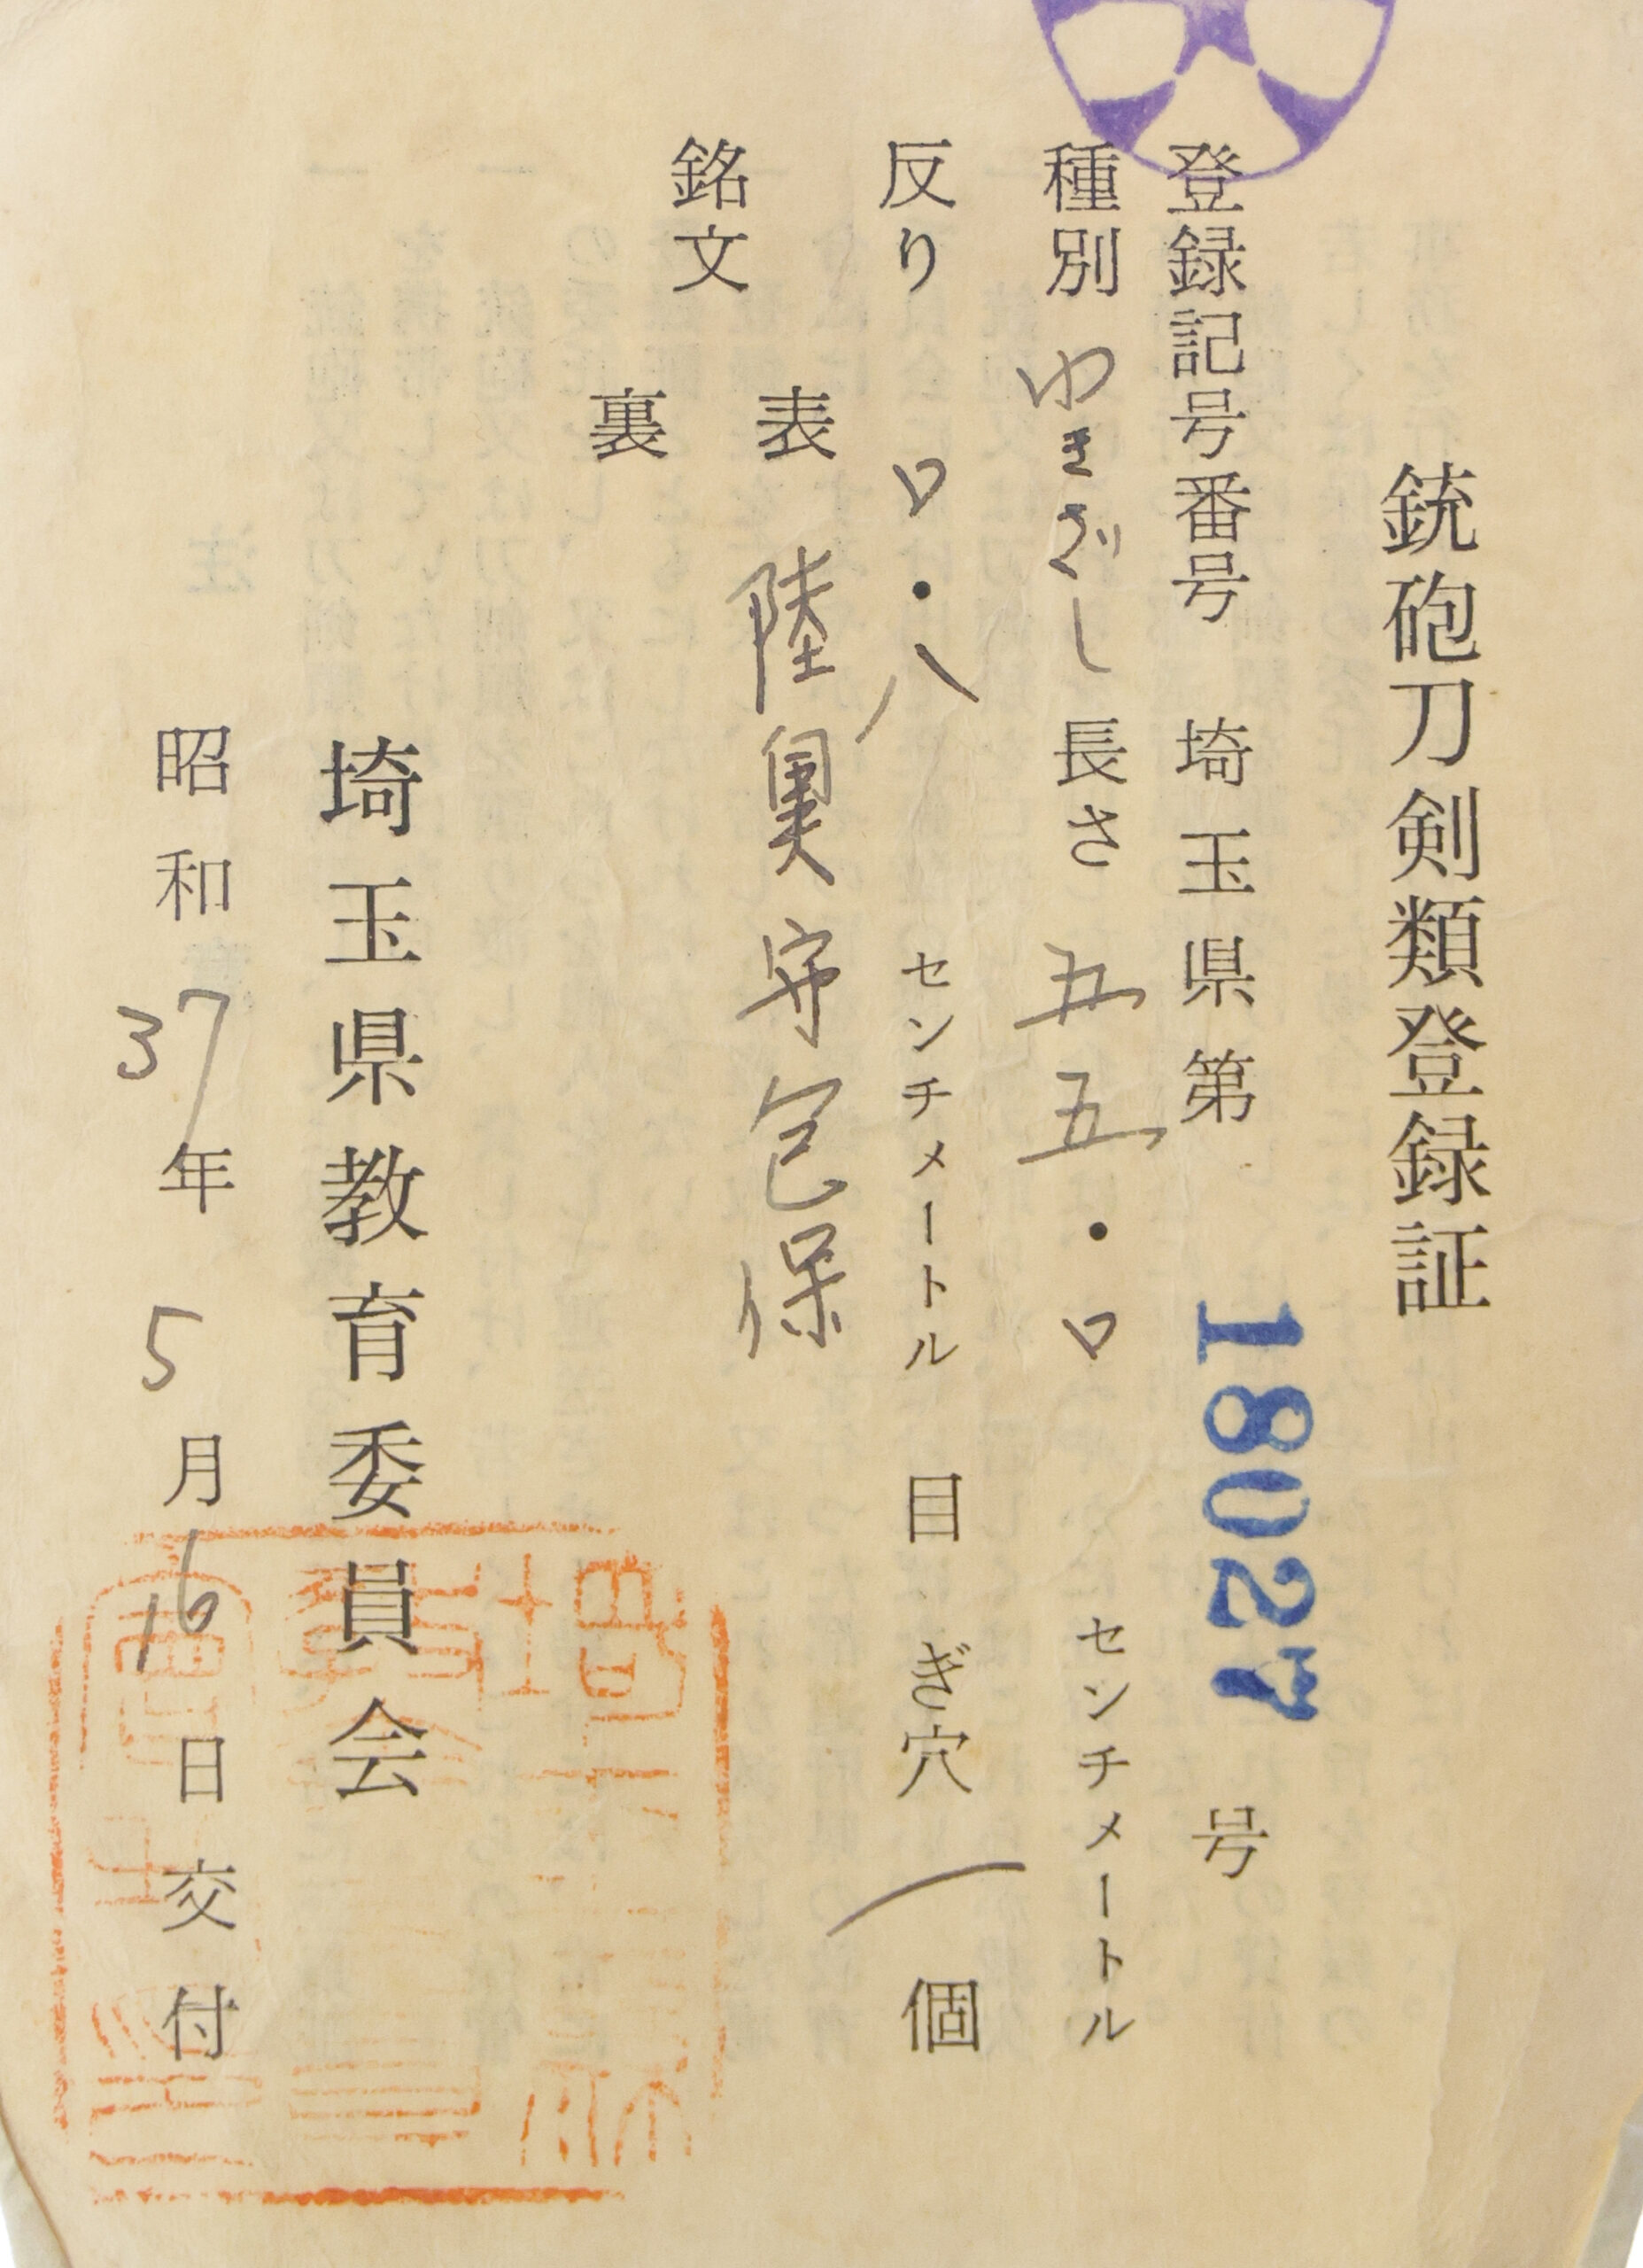 銃砲刀剣類登録証
登録記号番号 埼玉県第 18027 号
種別 わきざし 長さ 五五・〇 センチメートル
反り 〇・八 センチメートル 目ぎ穴 1 個
銘文
表 陸奥守包保
裏
埼玉県教育委員会
昭和37年5月16日交付